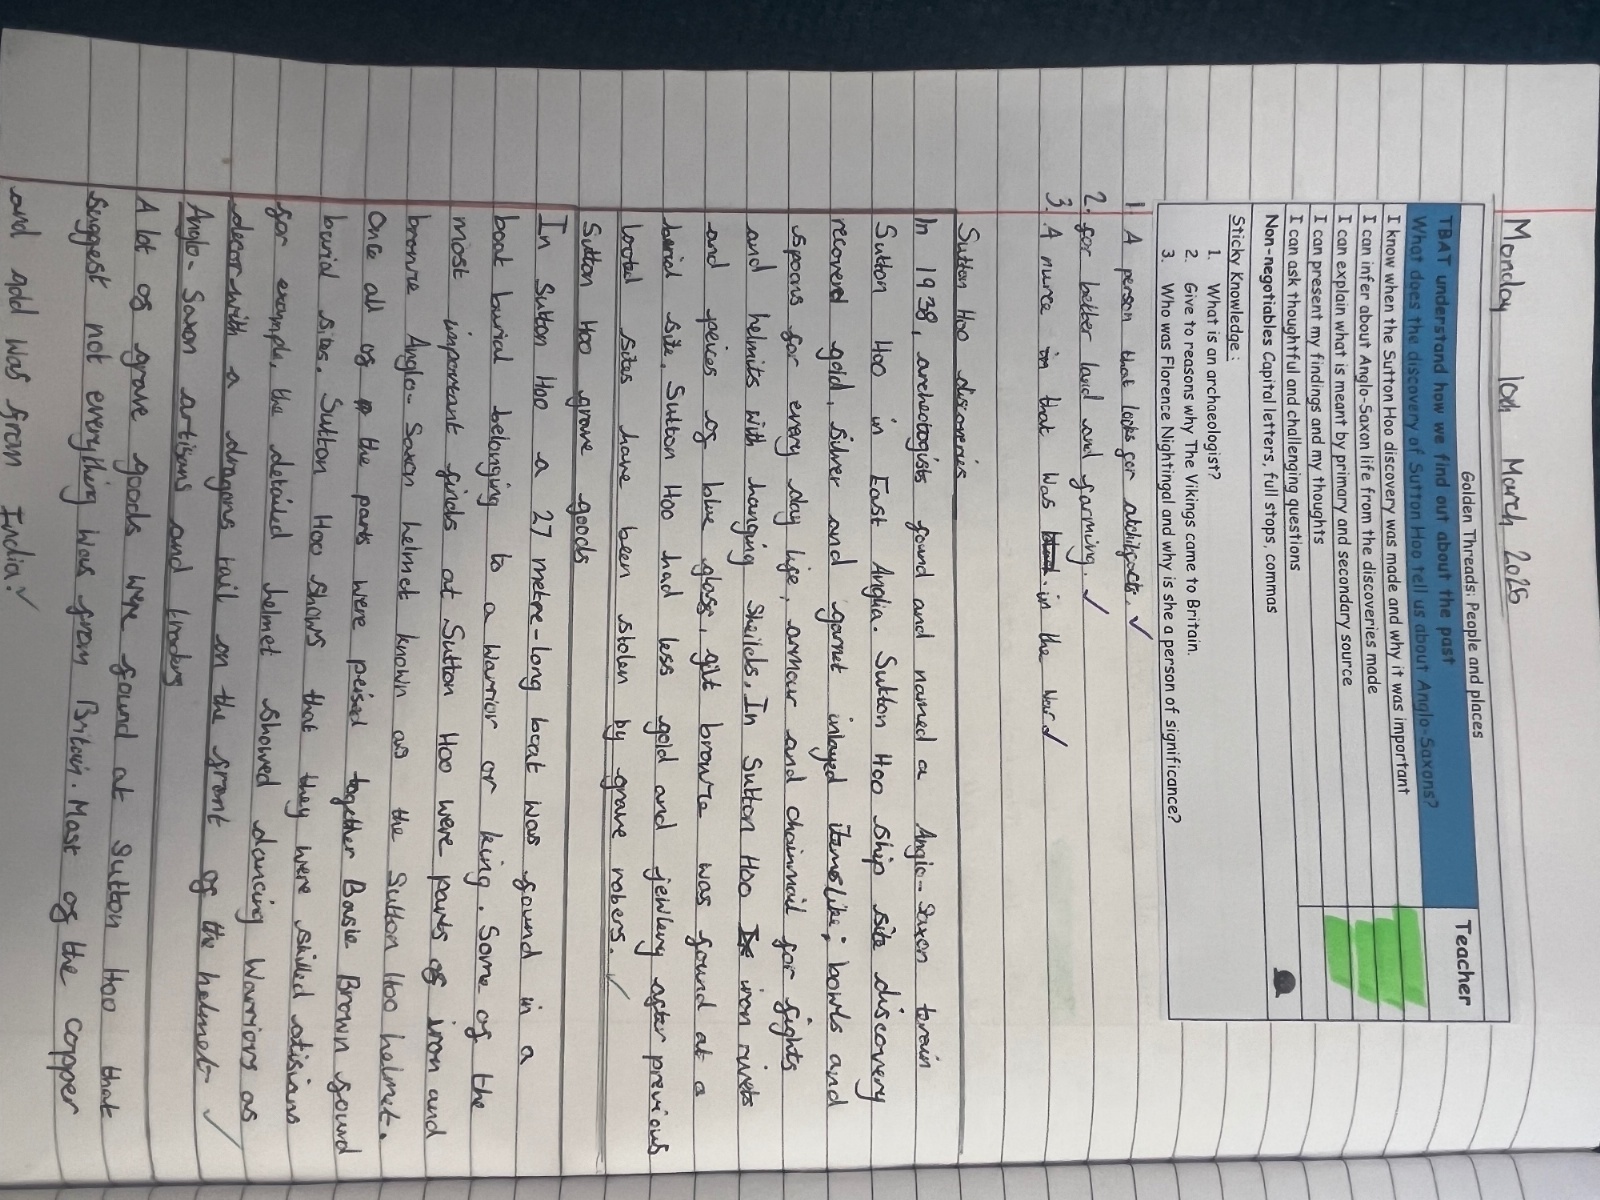 Monday 10th March 2026
Golden Threads: People and places
TBAT understand how we find out about the past
What does the discovery of Sutton Hoo tell us about Anglo-Saxons?
Teacher
I know when the Sutton Hoo discovery was made and why it was important
I can infer about Anglo-Saxon life from the discoveries made
I can explain what is meant by primary and secondary source
I can present my findings and my thoughts
I can ask thoughtful and challenging questions
Non-negotiables Capital letters, full stops, commas
Sticky Knowledge:
1. What is an archaeologist?
2. Give to reasons why The Vikings came to Britain.
3. Who was Florence Nightingal and why is she a person of significance?
1. A person that looks for
2. for better land and farming.
3. A nurce that was in the
Sutton Hoo discoveries
In 1938, archeotogists found and named a Anglo-Saxon
Sutton Hoo in East Anglia. Sutton Hoo ship site discovery
recovered gold, silver and garnet inlayed items like; bowls and
spoons for every day life, armour and chainmail for fights
and helmits with hanging Sheilds. In Sutton Hoo iron rivets
and peices of blue glass, gilt bronze was found at a
berial site. Sutton Hoo had less gold and jewlery after previous
looted sites have been stolen by grave robers.
Sutton Hoo grave goods
In Sutton Hoo a 27 metre-long boat was found in a
boat burial belonging to a warrior or king. Some of the
most important finds at Sutton Hoo were parts of iron and
bronze Anglo-Saxon helmet known as the Sutton Hoo helmet.
Once all of the parts were peised together Basle Brown found
burial sites. Sutton Hoo shows that they were skilled atisians
for example, the detailed helmet showed dancing Warriors as
decor with a dragons tail on the front of the helmet
Anglo-Saxon artisans and traders
A lot of grave goods were found at Sutton Hoo that
suggest not everything was from Britain. Most of the copper
and gold was from India.